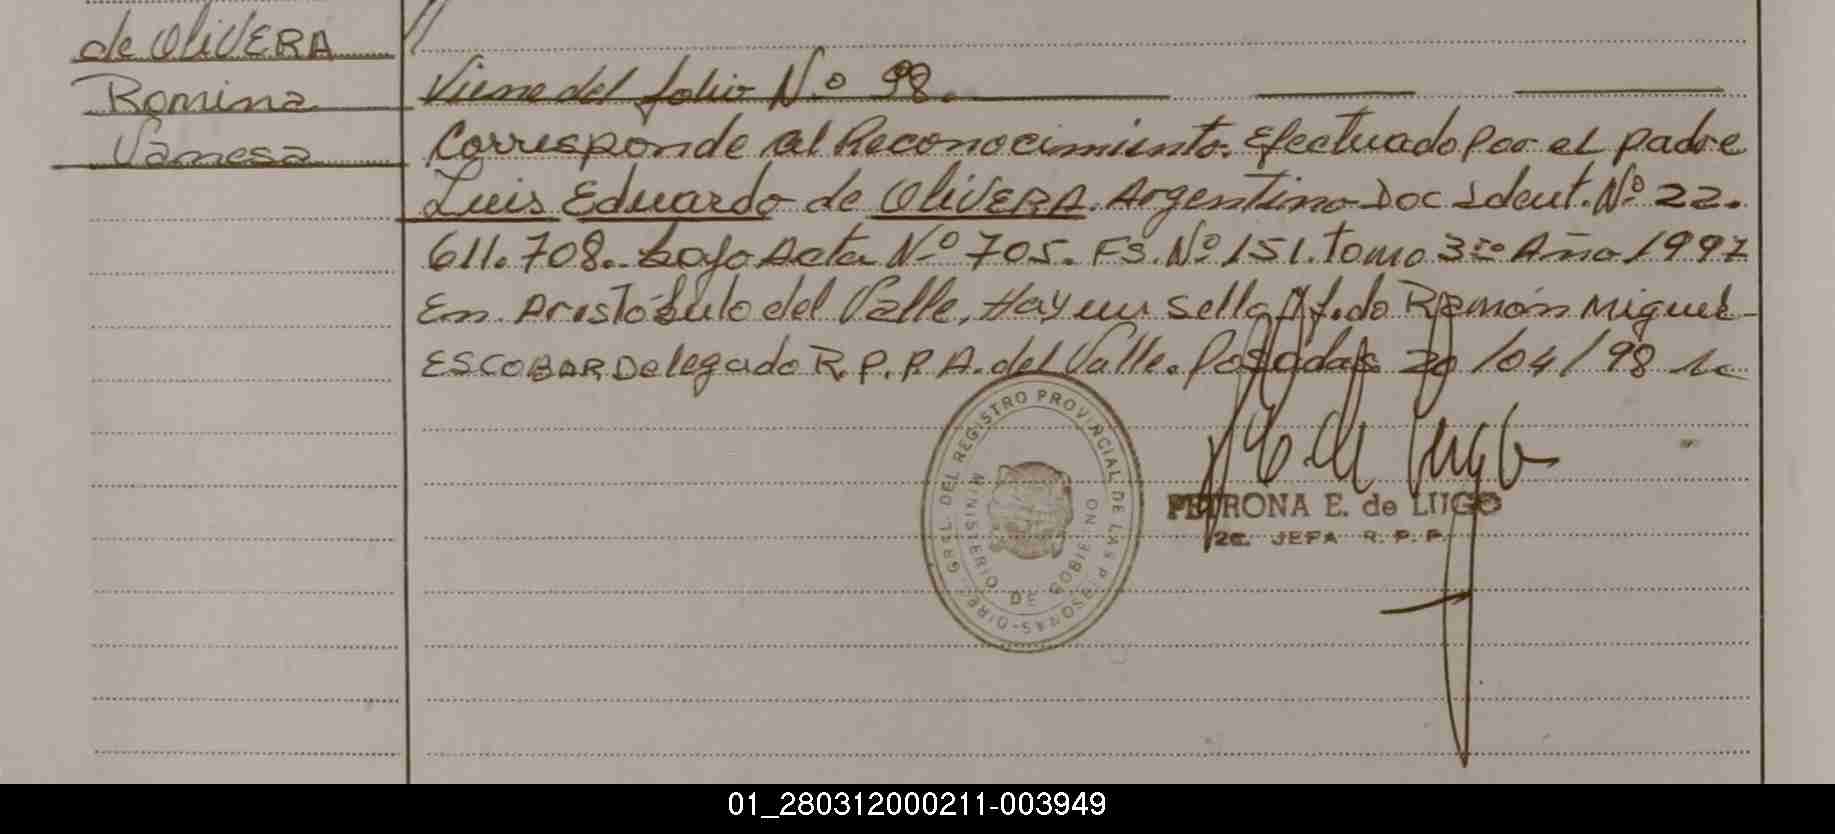 de OliVERA
Romina
Vanesa
Viene del folio N.º 98.
Corresponde al Reconocimiento. Efectuado Por el padre
Luis Eduardo de OliVERA. Argentino Doc Ident. Nº 22.
611.708. bajo Acta Nº 705. FS. Nº 151. tomo 3ro Año 1997
En Aristóbulo del Valle, Hay un sello f.do Ramón Miguel
ESCOBAR Delegado R.P.P. A. del Valle. Posadas 20/04/98
DIRE. GRAL. DEL REGISTRO PROVINCIAL DE LAS PERSONAS
MINISTERIO DE GOBIERNO
PETRONA E. de LUGO
2a. JEFA R.P.P.
01_280312000211-003949